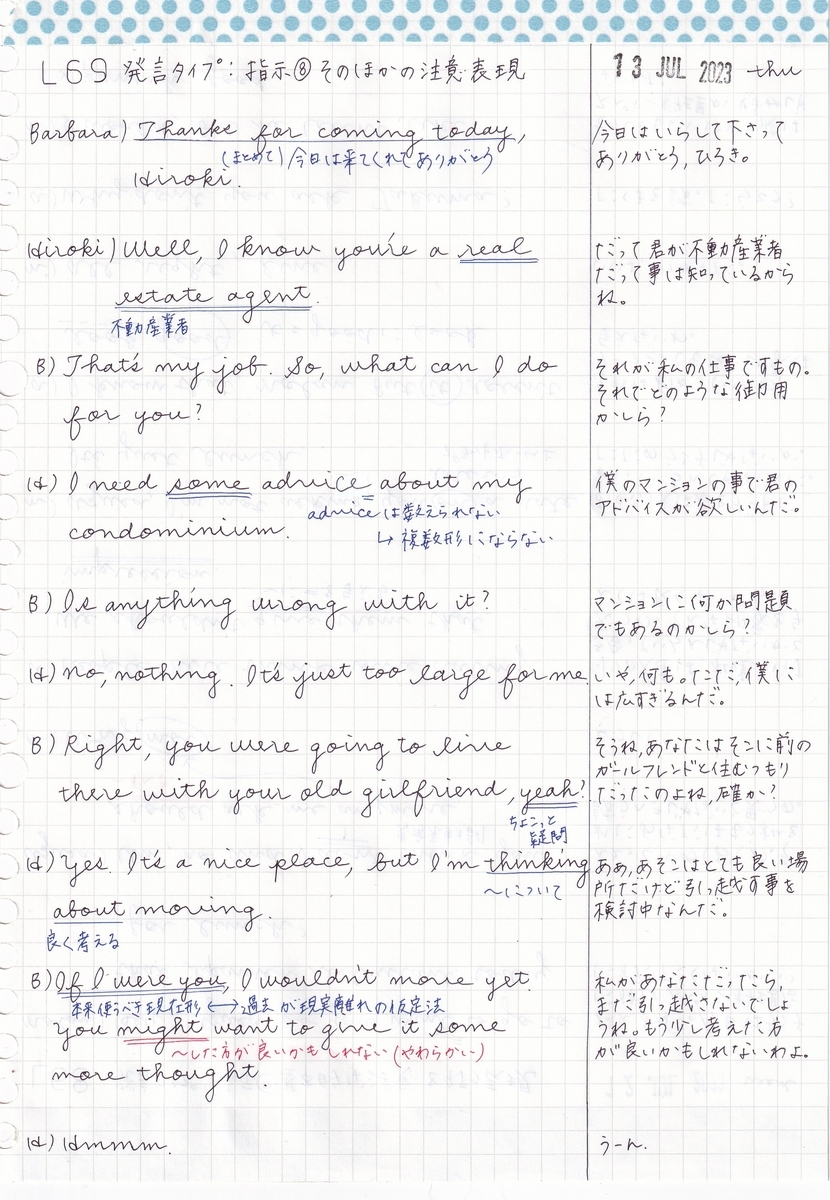 L69 発言タイプ:指示⑧そのほかの注意表現
13 JUL 2023 thu
Barbara) Thanks for coming today,
(まとめて)今日は来てくれてありがとう
Hiroki.
今日はいらして下さって
ありがとう,ひろき。
Hiroki) Well, I know you're a real
estate agent.
不動産業者
だって君が不動産業者
だって事は知っているから
ね。
B) That's my job. So, what can I do
for you?
それが私の仕事ですもの。
それでどのような御用
かしら?
H) I need some advice about my
adviceは数えられない
condominium.
↳ 複数形にならない
僕のマンションの事で君の
アドバイスが欲しいんだ。
B) Is anything wrong with it?
マンションに何か問題
でもあるのかしら?
H) No, nothing. It's just too large for me.
いや,何も。ただ,僕に
は広すぎるんだ。
B) Right, you were going to live
there with your old girlfriend, yeah?
ちょこっと
疑問
そうね,あなたはそこに前の
ガールフレンドと住むつもり
だったのよね,確か?
H) Yes. It's a nice place, but I'm thinking
〜について
about moving.
良く考える
ああ,あそこはとても良い場
所だけど引っ越す事を
検討中なんだ。
B) If I were you, I wouldn't move yet.
本来使うべき現在形 ⟷ 過去が現実離れの仮定法
You might want to give it some
〜した方が良いかもしれない(やわらかい)
more thought.
私があなただったら,
まだ引っ越さないでしょ
うね。もう少し考えた方
が良いかもしれないわよ。
H) Hmmm.
うーん.